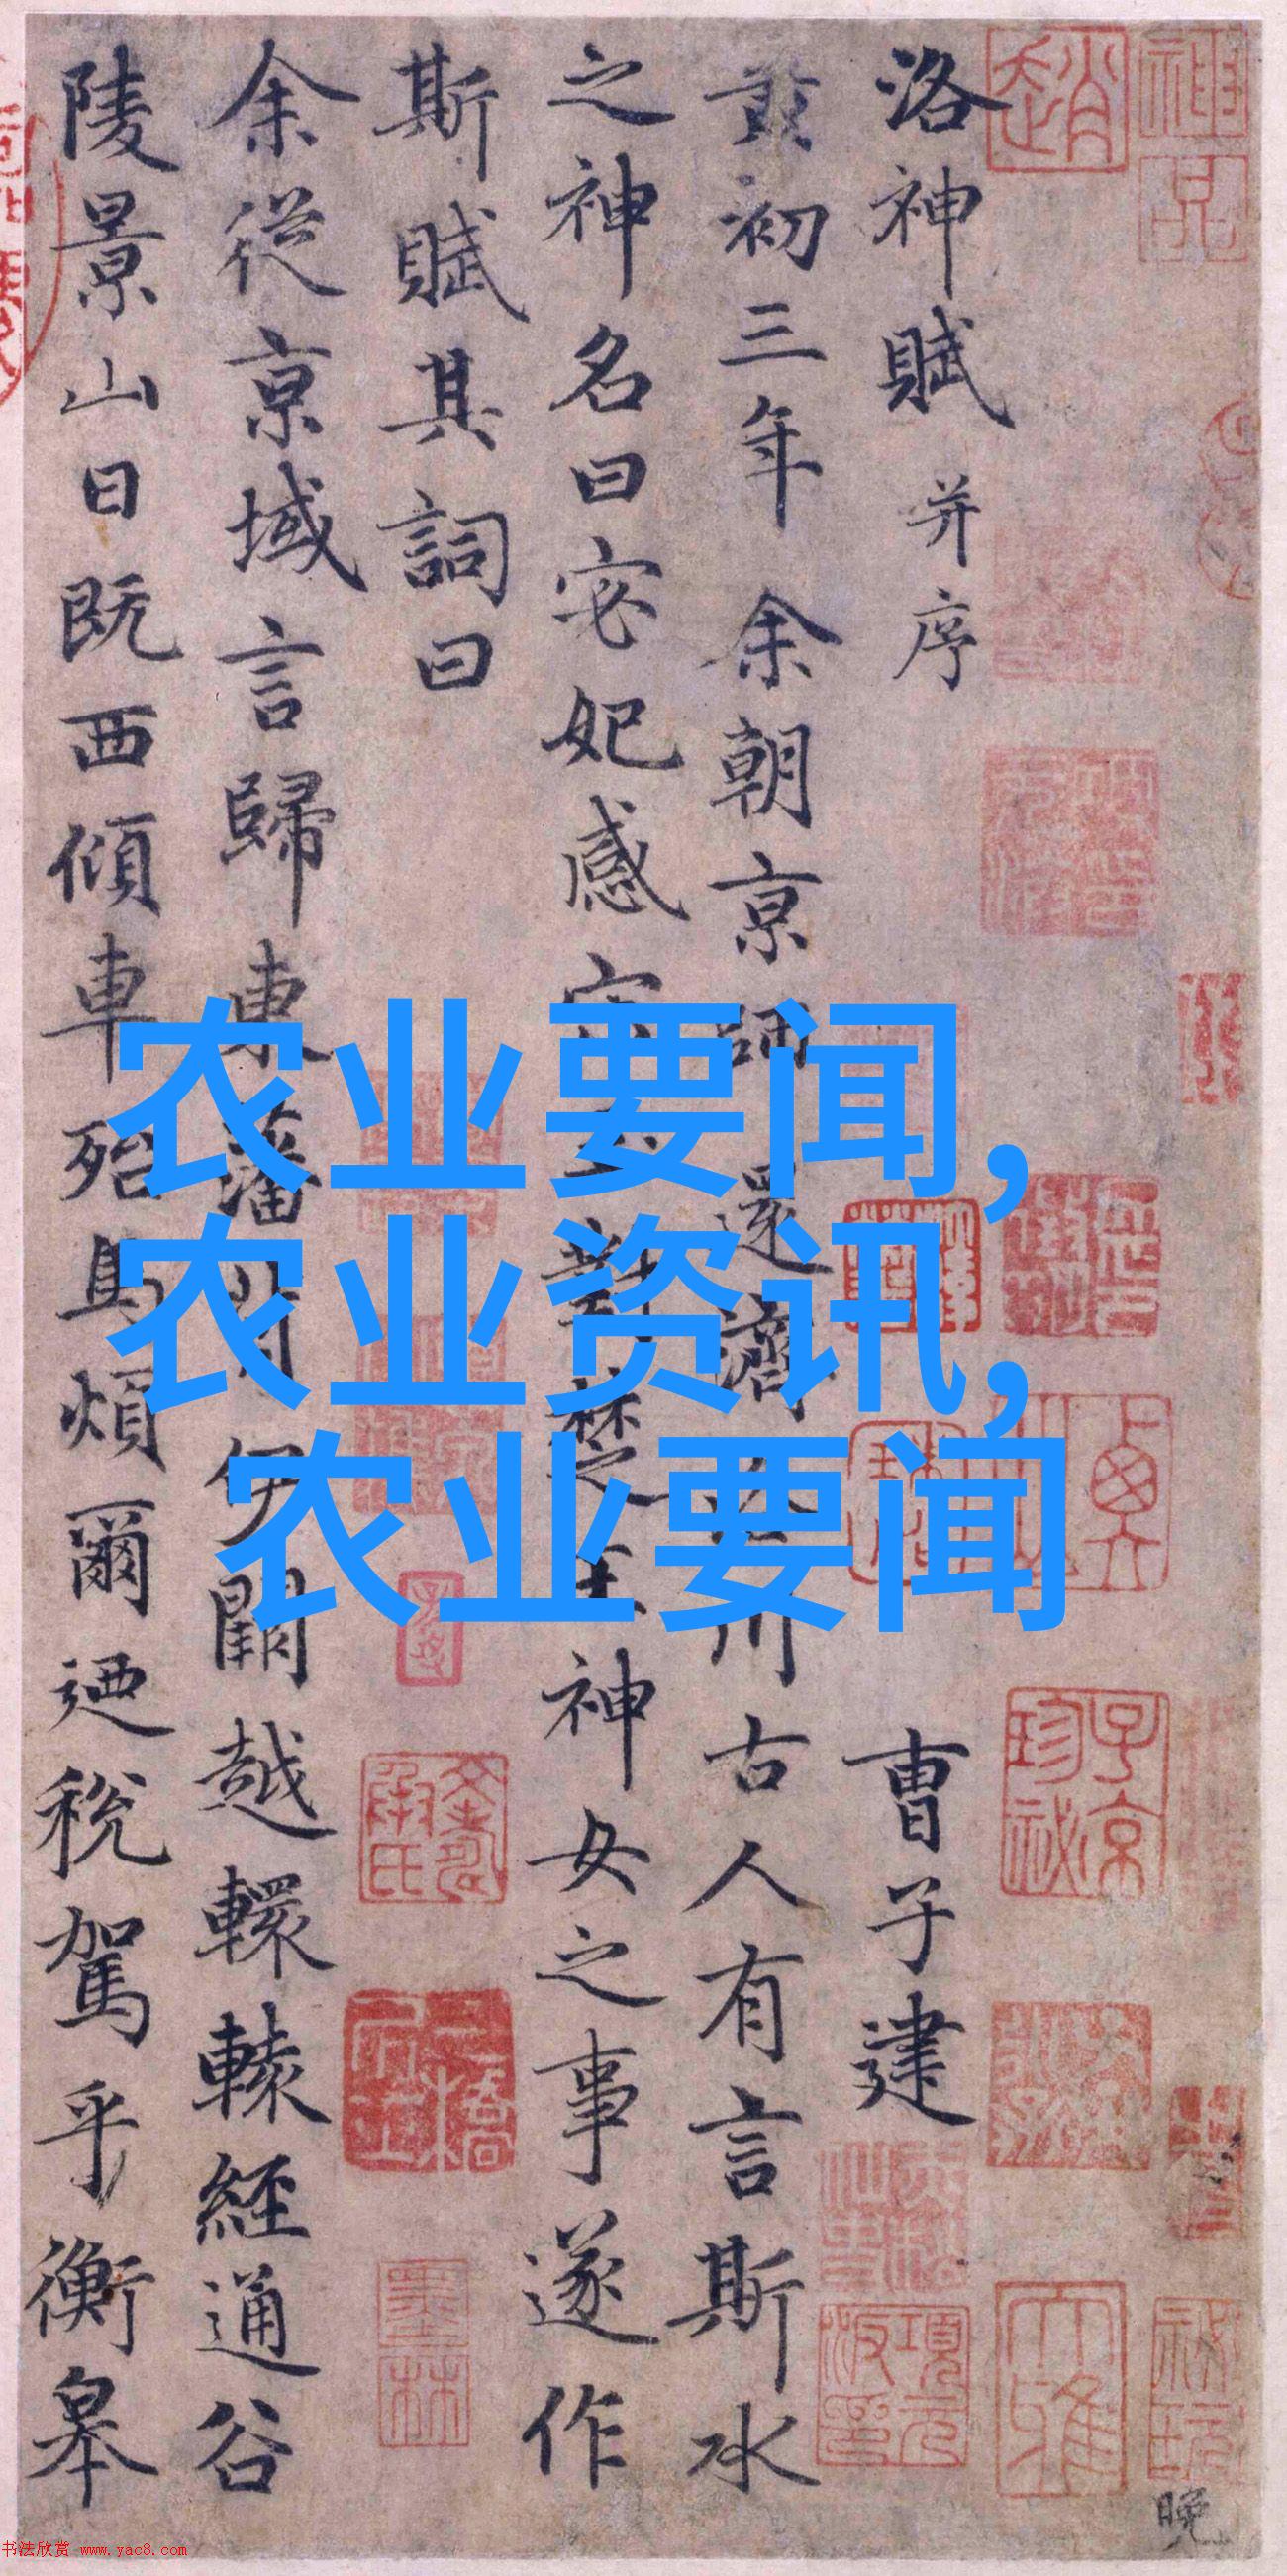 洛神賦 并序
曹子建
黃初三年余朝京師還濟洛川古人有言斯水
之神名曰宓妃感宋玉對楚王神女之事遂作
斯賦其詞曰
余從京域言歸東藩背伊闕越轘轅經通谷
陵景山日既西傾車殆馬煩爾迺稅駕乎衡皋
農业要闻,
农业资讯,
农业要闻
趙
子京
珍祕
項元
汴印
墨林
大雅
晚
书法欣赏 www.yac8.com